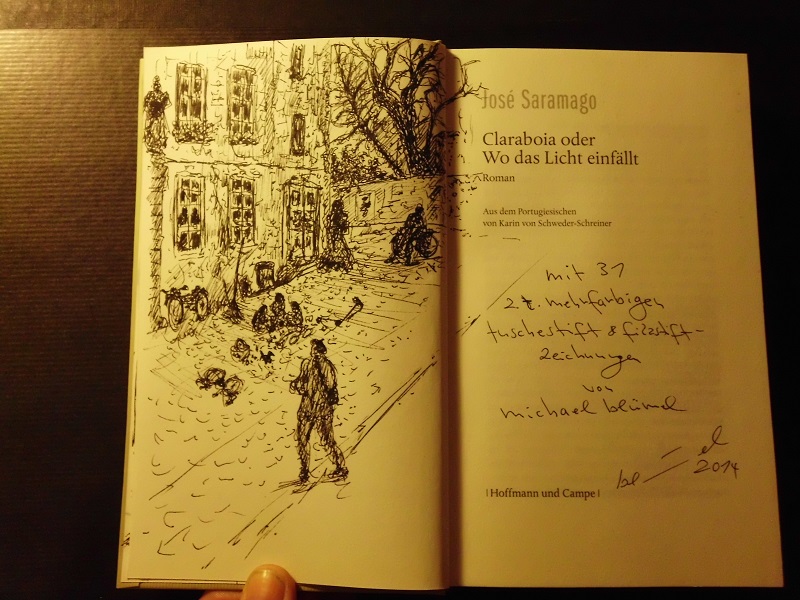 José Saramago
Claraboia oder
Wo das Licht einfällt
Roman
Aus dem Portugiesischen
von Karin von Schweder-Schreiner
mit 31
z.t. mehrfarbigen
tuschestift & filzstift-
zeichnungen
von
michael blümel
bl – el
2014
| Hoffmann und Campe |